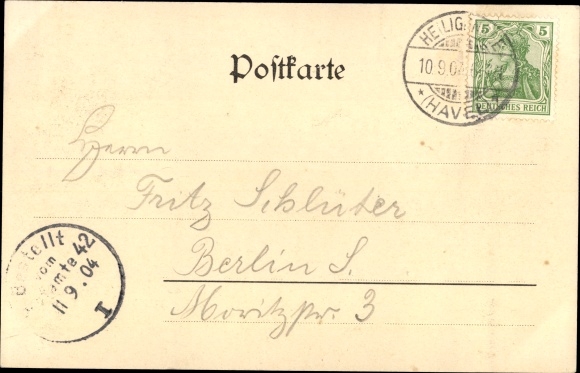 Postkarte
5 5
DEUTSCHES REICH
10.9.04
(HAVEL)
Herrn
Fritz Schlüter
Berlin S.
Moritzstr. 3
Bestellt
vom
42
11 9. 04
I